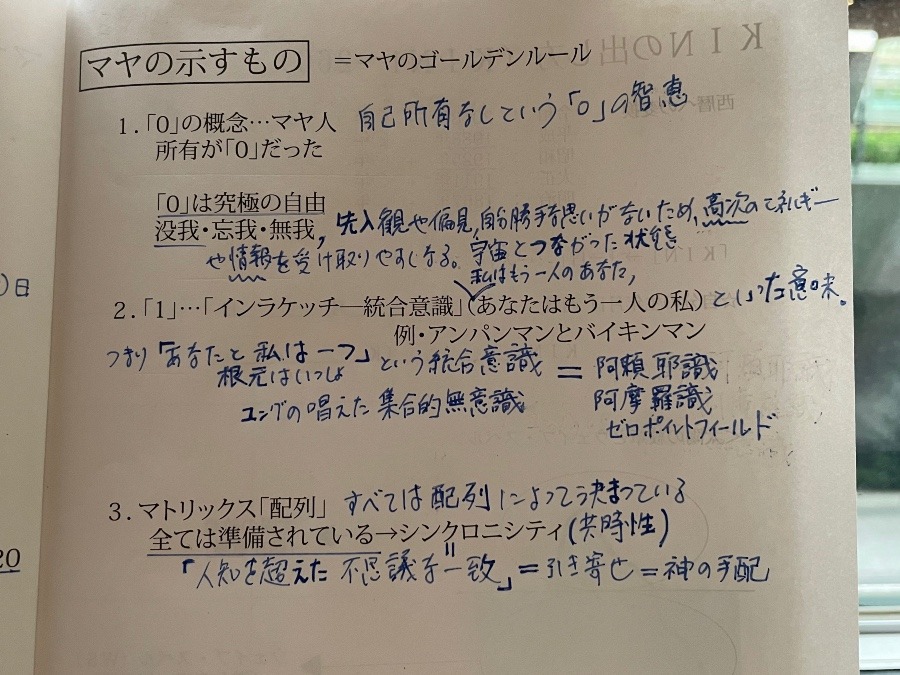 マヤの示すもの =マヤのゴールデンルール
1.「0」の概念…マヤ人 自己所有なしという「0」の智恵
所有が「0」だった
「0」は究極の自由
没我・忘我・無我, 先入観や偏見,自分勝手な思いがないため,高次のエネルギー
や情報を受け取りやすくなる。宇宙とつながった状態
私はもう一人のあなた,
2.「1」…「インラケッチ―統合意識」(あなたはもう一人の私) といった意味。
例・アンパンマンとバイキンマン
つまり「あなたと私は一つ」という統合意識 = 阿頼耶識
根元はいっしょ
ユングの唱えた集合的無意識 阿摩羅識
ゼロポイントフィールド
3.マトリックス「配列」 すべては配列によって決まっている
全ては準備されている→シンクロニシティ(共時性)
「人知を超えた不思議な一致」=引き寄せ=神の手配
)日
20
KINの出し
西暦